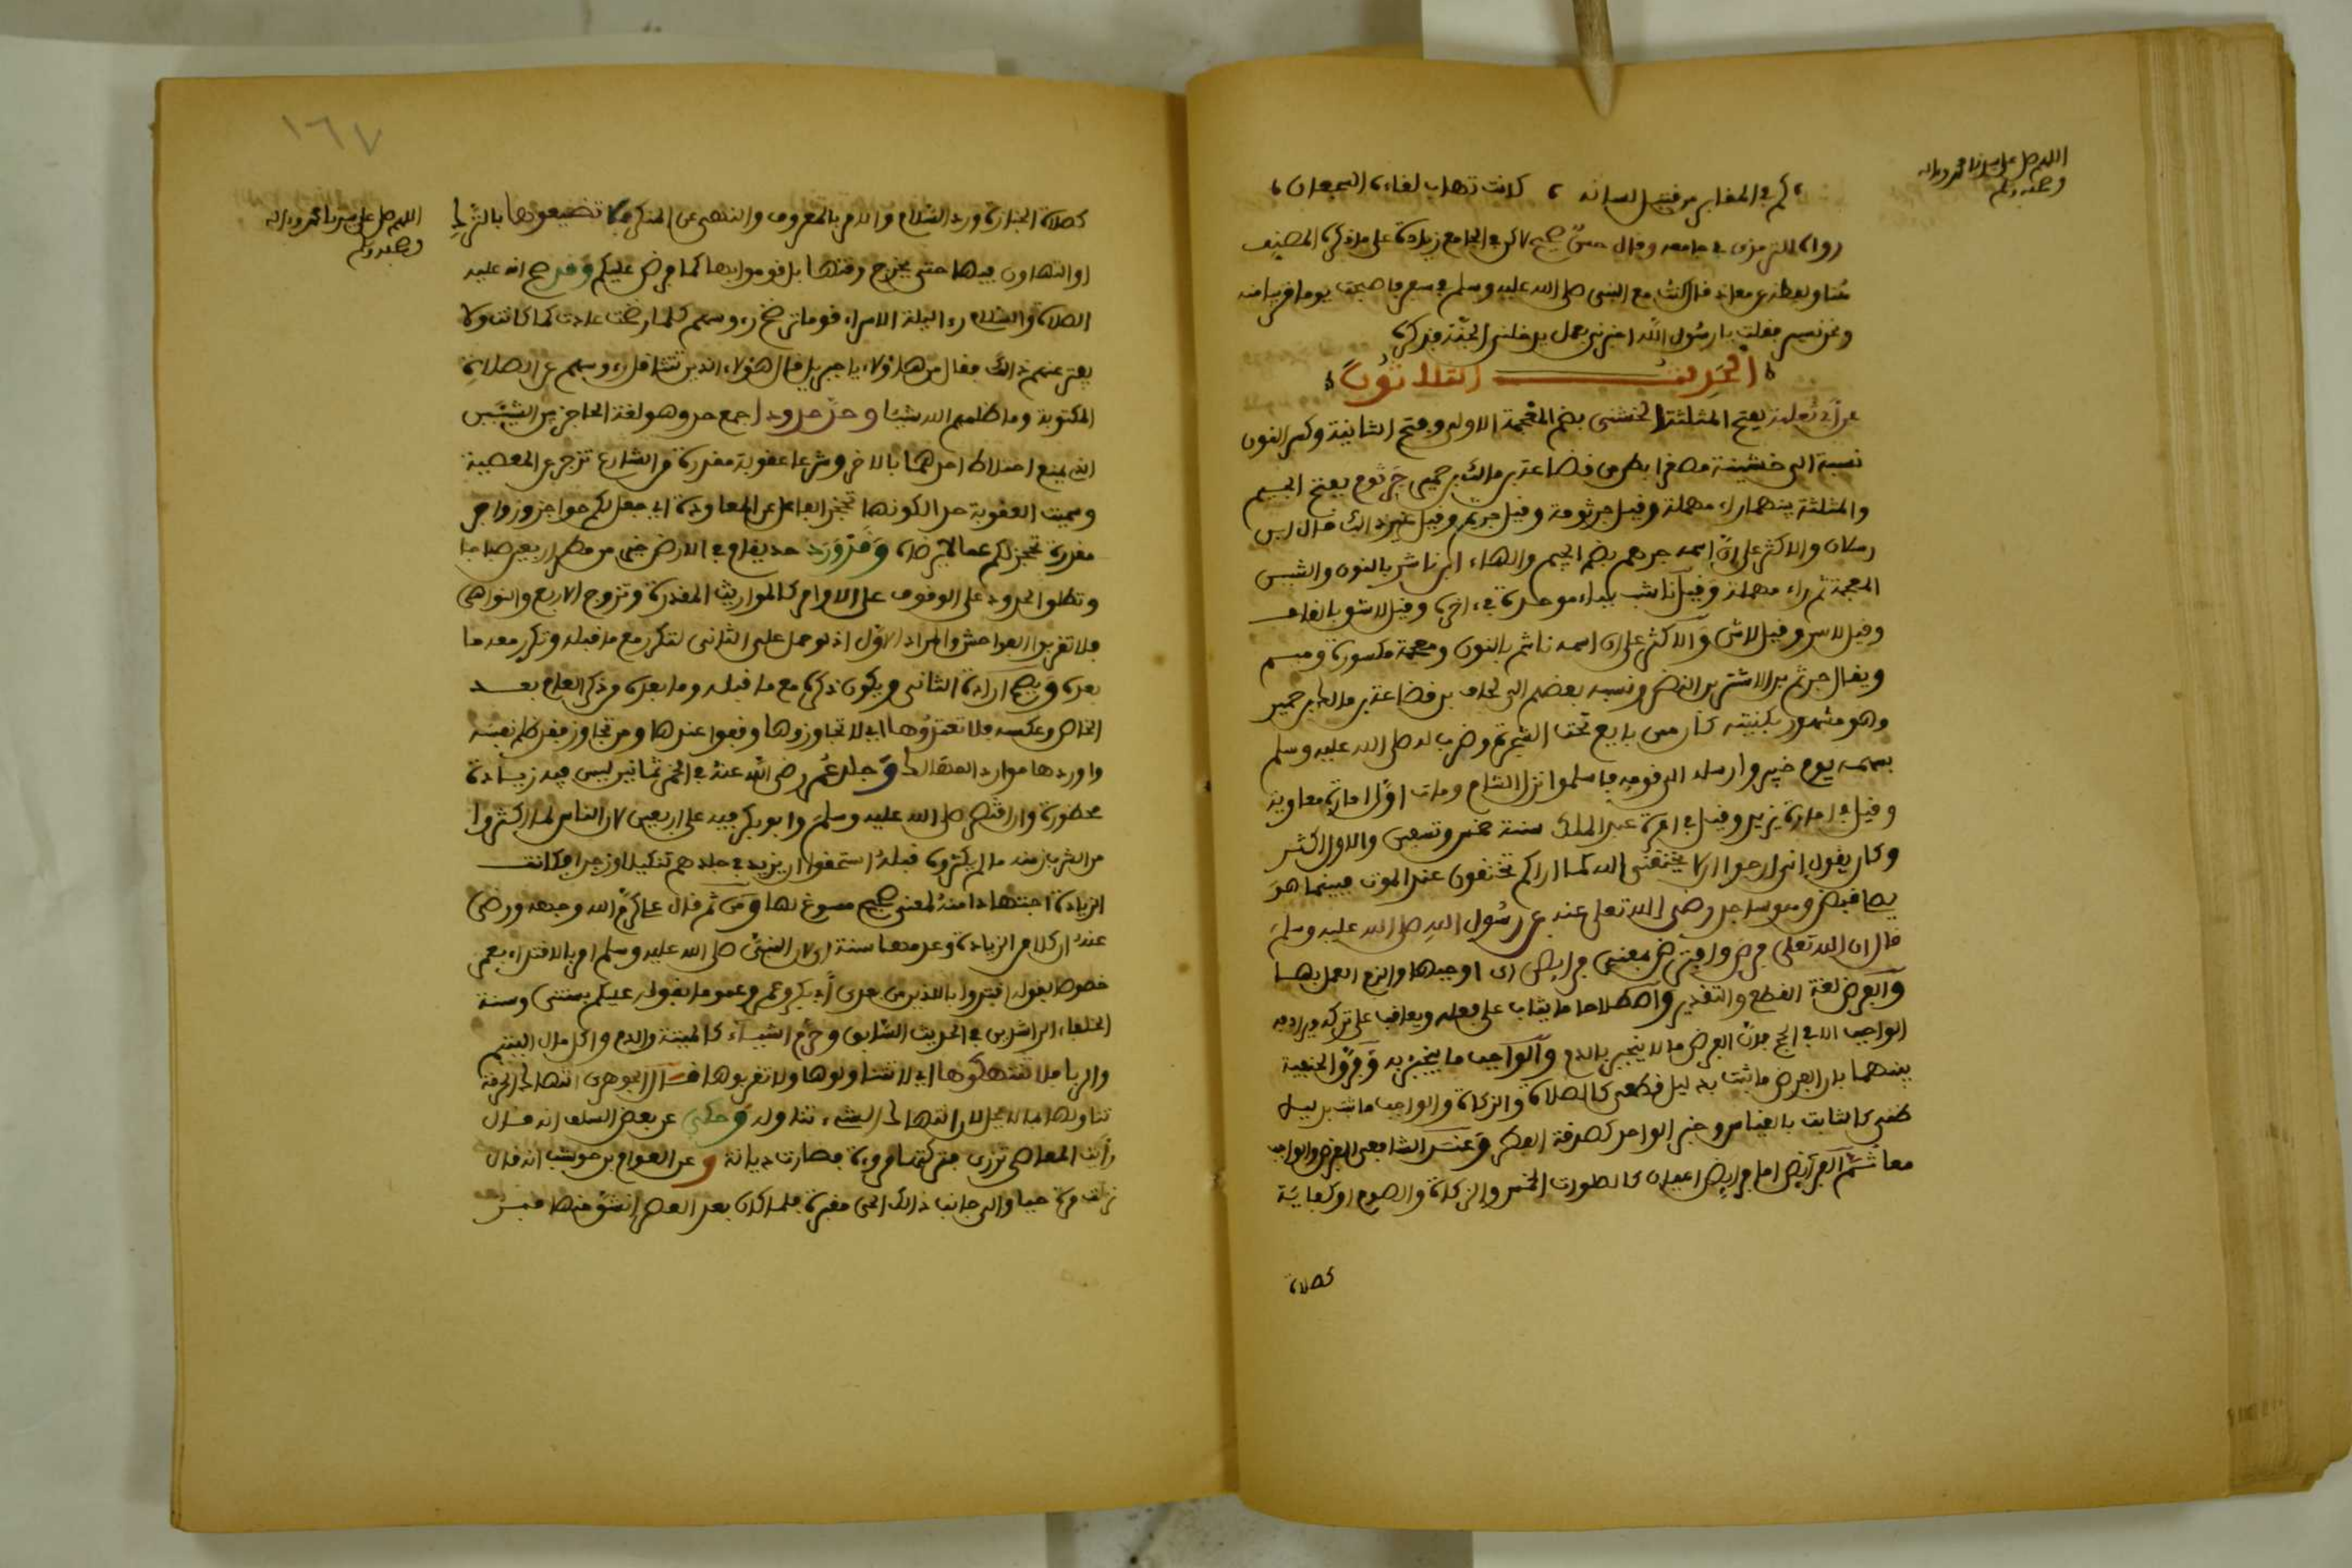 اللهم صل على سيدنا محمد وءاله
وصحبه وسلم
كم في المقابر من قتيل لسانه ، كانت تهاب لقاءه الشجعان ،
رواه الترمذي في جامعه وقال حسن صحيح لاكن في الجامع زيادة على ما ذكره المصنف
هنا ولفظه عن معاذ قال كنت مع النبي صلى الله عليه وسلم في سفر فاصبحت يوما قريبا منه
ونحن نسير فقلت يا رسول الله اخبرني بعمل يدخلني الجنة فذكره
الحديث الثلاثون
عن أبي ثعلبة بفتح المثلثة الخشني بضم المعجمة الاولى وفتح الثانية وكسر النون
نسبة الى خشينة مصغرا بطن من قضاعة بن مالك بن حمير جرثوم بفتح الجيم
والمثلثة بينهما راء مهملة وقيل جرثومة وقيل جرثم وقيل غير ذالك قال ابن
رسلان والاكثر على ان اسمه جرهم بضم الجيم والهاء ابن ناشر بالنون والشين
المعجمة ثم راء مهملة وقيل ناشب بباء موحدة في ءاخره وقيل لاشو بالقاف
وقيل لاسر وقيل لاش والاكثر على ان اسمه ناشم بالنون ومعجمة مكسورة وميم
ويقال جرثم بن الاشتر بن النضر ونسبه بعضهم الى لحاف بن قضاعة بن مالك بن حمير
وهو مشهور بكنيته كان ممن بايع تحت الشجرة وضرب له صلى الله عليه وسلم
بسهمه يوم خيبر وارسله الى قومه فاسلموا نزل الشام ومات اول امارة معاوية
وقيل في امارة يزيد وقيل في امرة عبد الملك سنة خمس وتسعين والاول اكثر
وكان يقول اني لارجوا ان لا يخنقني الله كما اراكم تخنقون عند الموت فبينما هو
يصلي قبض وهو ساجد رضي الله تعلى عنه عن رسول الله صلى الله عليه وسلم
قال ان الله تعلى فرض وافترض بمعنى فرايض اى اوجبها والزم العمل بها
والفرض لغة القطع والتقدير واصطلاحا ما يثاب على فعله ويعاقب على تركه ويرادفه
الواجب الا في الحج فان الفرض ما لا ينجبر بالدم والواجب ما ينجبر به وفرق الحنفية
بينهما بان الفرض ما ثبت بدليل قطعي كالصلاة والزكاة والواجب ما ثبت بدليل
ظني كالثابت بالقياس وخبر الواحد كصدقة الفطر وعند الشافعي الفرض والواجب
معا ثم الفرايض اما فرايض اعيان كالصلوات الخمس والزكاة والصوم او كفاية
كصلاة
١٦٧
اللهم صل على سيدنا محمد وءاله
وصحبه وسلم
كصلاة الجنازة ورد السلام والامر بالمعروف والنهي عن المنكر فلا تضيعوها بالترك
او التهاون فيها حتى يخرج وقتها بل قوموا بها كما فرض عليكم وقد صح انه عليه
الصلاة والسلام رءا ليلة الاسراء قوما ترضخ رءوسهم كلما رضخت عادت كما كانت ولا
يفتر عنهم ذالك فقال من هاؤلاء يا جبريل قال هؤلاء الذين تتثاقل رءوسهم عن الصلاة
المكتوبة وما ظلمهم الله شيئا وحد حدودا جمع حد وهو لغة الحاجز بين الشيئين
الذي يمنع اختلاط احدهما بالاخر وشرعا عقوبة مقدرة من الشارع تزجر عن المعصية
وسميت العقوبة حدا لكونها تحجز الفاعل عن المعاودة اي جعل لكم حواجز وزواجر
مقدرة تحجزكم عما لا يرضاه وقد ورد حد يقام في الارض خير من مطر اربعين صباحا
وتطلق الحدود على الوقوف على الاوامر كالمواريث المقدرة وتزوج الاربع والنواهي
فلا تقربوا الفواحش والمراد الاول اذ لو حمل على الثاني لتكرر مع ما قبله وتكرر معه ما
بعده ويصح ارادة الثاني ويكون ذكره مع ما قبله وما بعده من ذكر العام بعد
الخاص وعكسه فلا تعتدوها اي لا تجاوزوها وقفوا عندها ومن تجاوز فقد ظلم نفسه
واوردها موارد المهالك وجلد عمر رضي الله عنه في الخمر ثمانين ليس فيه زيادة
محظورة وان اقتصر صلى الله عليه وسلم وابو بكر فيه على اربعين لان الناس لما اكثروا
من الشرب زمنه ما لم يكثروه قبله استحقوا ان يزيد في جلدهم تنكيلا وزجرا فكانت
الزيادة اجتهادا منه لمعنى صحيح مسوغ لها ومن ثم قال علي كرم الله وجهه ورضي
عنه ان كلا من الزيادة وعدمها سنة اى لان النبي صلى الله عليه وسلم امر بالاقتداء بعمر
خصوصا بقوله اقتدوا بالذين من بعدى أبي بكر وعمر وعموما بقوله عليكم بسنتي وسنة
الخلفاء الراشدين في الحديث السابق وحرم اشياء كالميتة والدم واكل مال اليتيم
والربا فلا تنتهكوها اي لا تتناولوها ولا تقربوها قال الجوهرى انتهاك الحرمة
تناولها بما لا يحل لان انتهاك الشيء تناوله وحكي عن بعض السلف انه قال
رأيت المعاصي تزرى فتركتها مروءة فصارت ديانة وعن العوام بن حوشب انه قال
نزلت مرة حيا والى جانب ذالك الحي مقبرة فلما كان بعد العصر انشق منها قبر